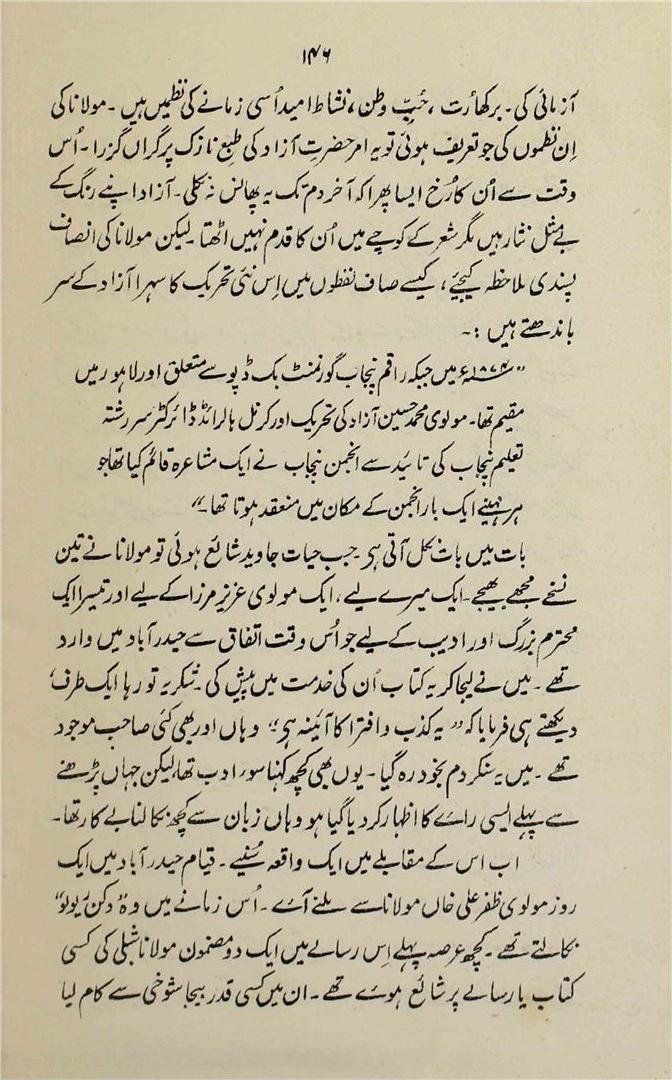 ۱۴۶
آزمائی کی۔ برکھا رُت ، حُبِّ وطن ، نشاط امید اُسی زمانے کی نظمیں ہیں ۔ مولانا کی
اِن نظموں کی جو تعریف ہوئی تو یہ امر حضرتِ آزاد کی طبع نازک پر گراں گزرا ۔ اُس
وقت سے اُن کا رُخ ایسا پھرا کہ آخر دم تک یہ پھانس نہ نکلی ۔ آزاد اپنے رنگ کے
بے مثل نثار ہیں مگر شعر کے کوچے میں اُن کا قدم نہیں اٹھتا لیکن مولانا کی انصاف
پسندی ملاحظہ کیجیے ، کیسے صاف لفظوں میں اِس نئی تحریک کا سہرا آزاد کے سر
باندھتے ہیں :۔
”۱۸۷۴ء میں جبکہ راقم پنجاب گورنمنٹ بک ڈپو سے متعلق اور لاہور میں
مقیم تھا ۔ مولوی محمد حسین آزاد کی تحریک اور کرنل ہالرائڈ ڈائرکٹر سررشتہ
تعلیم پنجاب کی تائید سے انجمن پنجاب نے ایک مشاعرہ قائم کیا تھا جو
ہر مہینے ایک بار انجمن کے مکان میں منعقد ہوتا تھا ۔“
بات میں بات نکل آتی ہی ۔ جب حیات جاوید شائع ہوئی تو مولانا نے تین
نسخے مجھے بھیجے ۔ ایک میرے لیے ، ایک مولوی عزیز مرزا کے لیے اور تیسرا ایک
محترم بزرگ اور ادیب کے لیے جو اُس وقت اتفاق سے حیدرآباد میں وارد
تھے ۔ میں نے لیجا کر یہ کتاب اُن کی خدمت میں پیش کی ۔ شکریہ تو رہا ایک طرف ،
دیکھتے ہی فرمایا کہ ”یہ کذب و افترا کا آئینہ ہی“ وہاں اور بھی کئی صاحب موجود
تھے ۔ میں یہ سنکر دم بخود رہ گیا ۔ یوں بھی کچھ کہنا سوء ادب تھا لیکن جہاں پڑھنے
سے پہلے ایسی راے کا اظہار کر دیا گیا ہو وہاں زبان سے کچھ نکالنا بے کار تھا ۔
اب اس کے مقابلے میں ایک واقعہ سُنیے ۔ قیام حیدرآباد میں ایک
روز مولوی ظفر علی خاں مولانا سے ملنے آے ۔ اُس زمانے میں وہ ”دکن ریویو“
نکالتے تھے ۔ کچھ عرصہ پہلے اِس رسالے میں ایک دو مضمون مولانا شبلی کی کسی
کتاب یا رسالے پر شائع ہوے تھے ۔ ان میں کسی قدر بیجا شوخی سے کام لیا